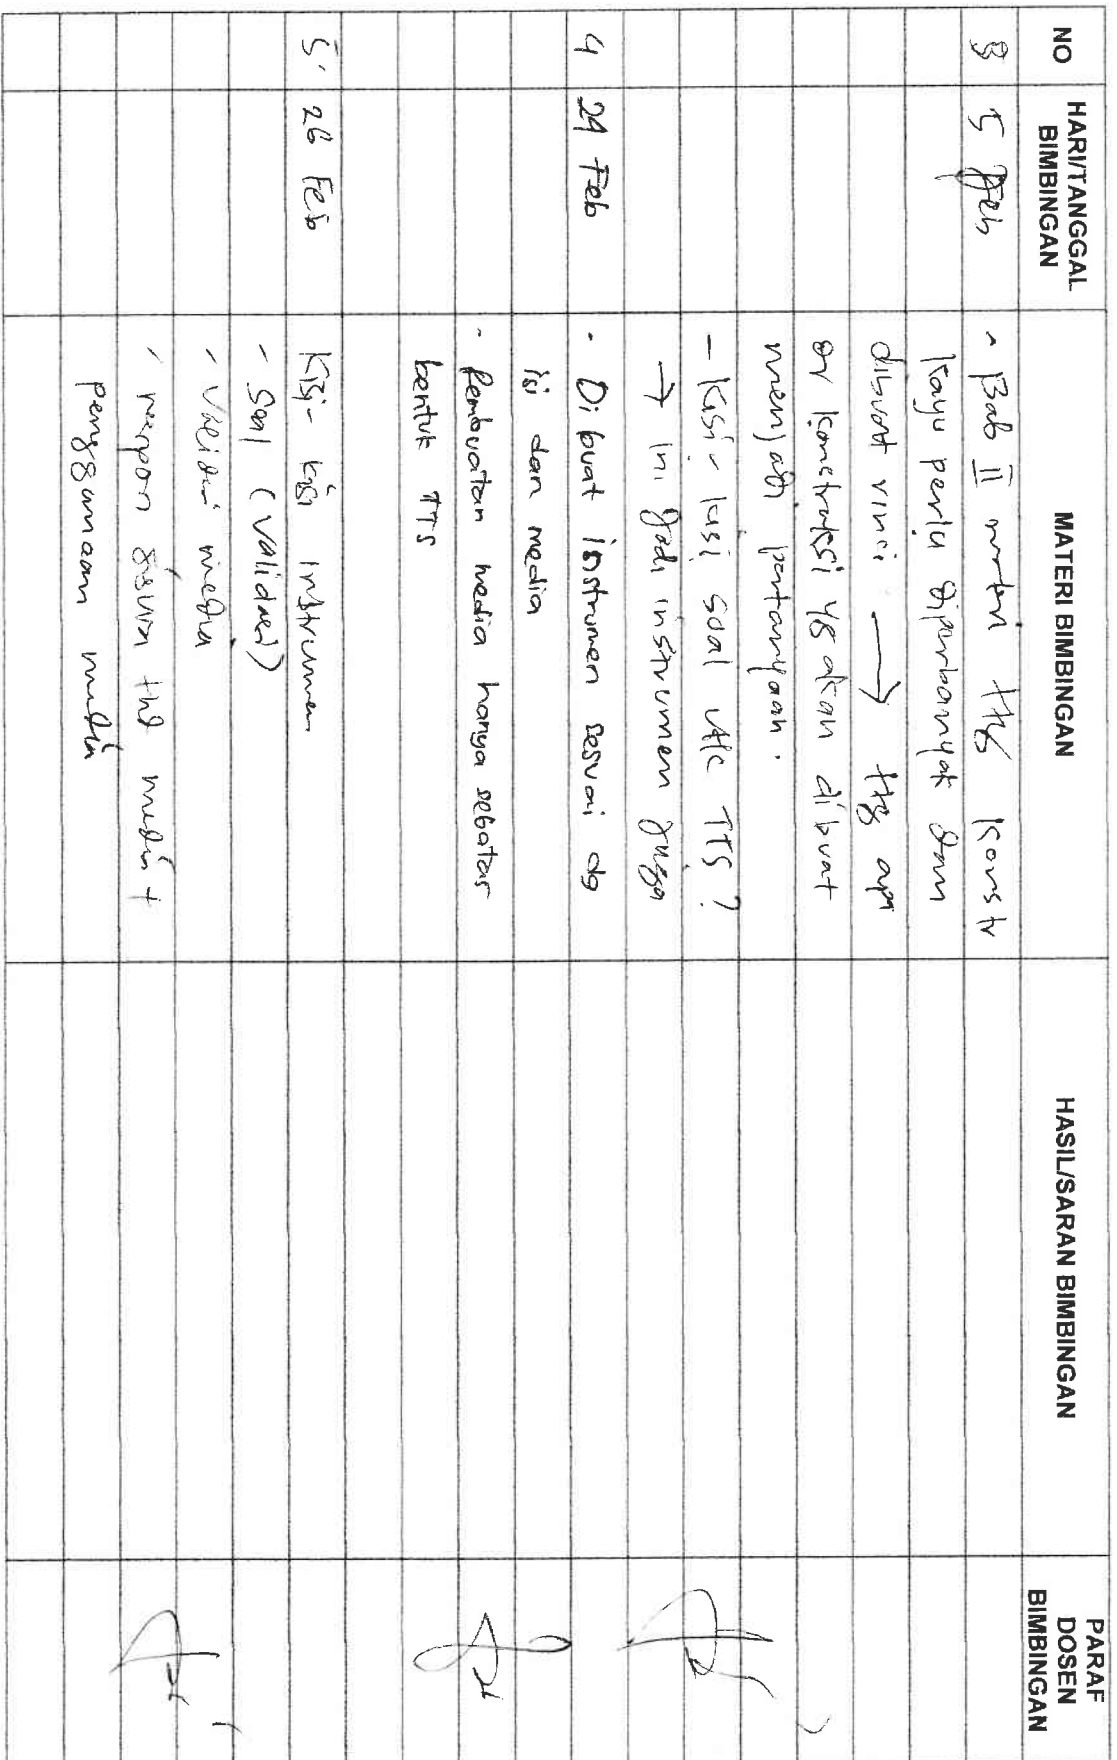 NO
HARI/TANGGAL BIMBINGAN
MATERI BIMBINGAN
HASIL/SARAN BIMBINGAN
PARAF DOSEN BIMBINGAN
3 5 Feb - Bab II materi ttg konstr
kayu perlu diperbanyak dan
dibuat rinci → ttg apa
konstruksi yg akan dibuat
menjadi pertanyaan.
- Kisi-kisi soal utk TTS?
→ ini jadi instrumen juga
4 24 Feb - Dibuat instrumen sesuai dg
isi dan media
- Pembuatan media hanya sebatas
bentuk TTS
5. 26 Feb Kisi-kisi instrumen
- Soal (validasi)
- Validasi media
- respon siswa thd media +
penggunaan media